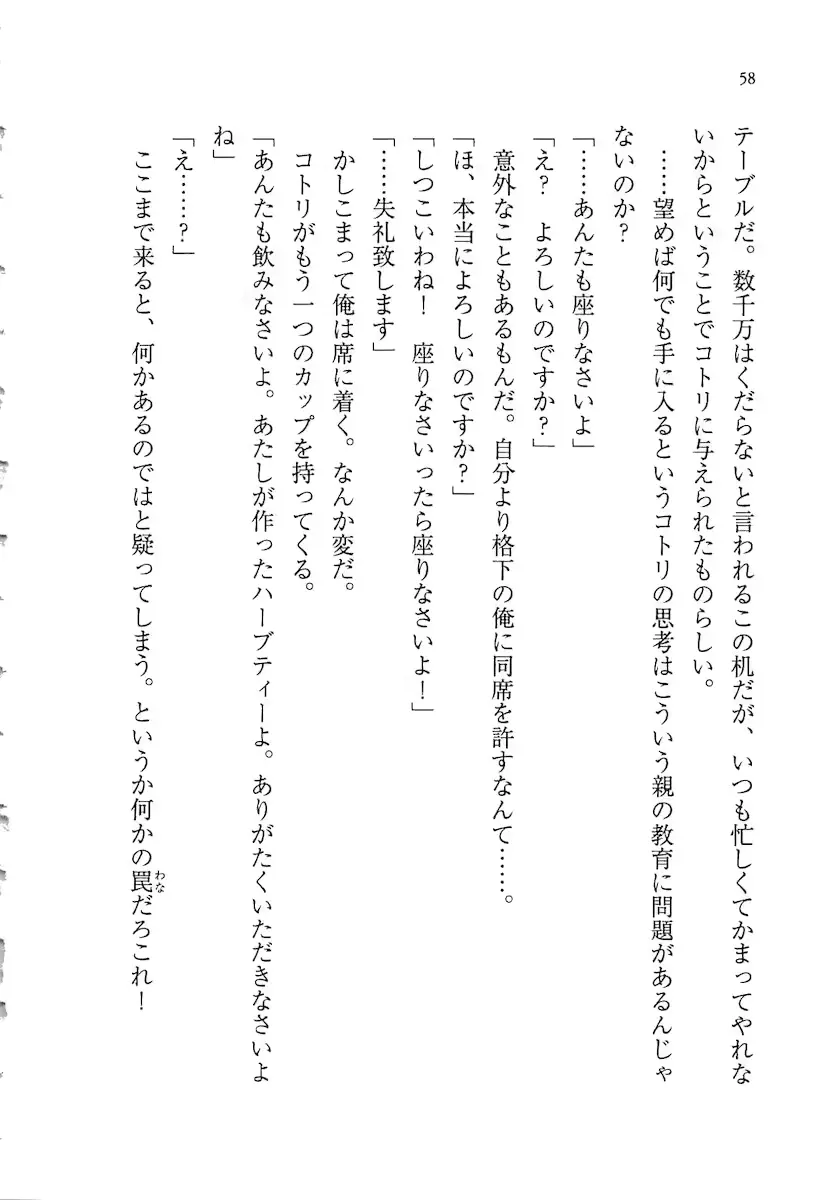 58
テーブルだ。数千万はくだらないと言われるこの机だが、いつも忙しくてかまってやれな
いからということでコトリに与えられたものらしい。
……望めば何でも手に入るというコトリの思考はこういう親の教育に問題があるんじゃ
ないのか？
「……あんたも座りなさいよ」
「え？　よろしいのですか？」
意外なこともあるもんだ。自分より格下の俺に同席を許すなんて……。
「ほ、本当によろしいのですか？」
「しつこいわね！　座りなさいったら座りなさいよ！」
「……失礼致します」
かしこまって俺は席に着く。なんか変だ。
コトリがもう一つのカップを持ってくる。
「あんたも飲みなさいよ。あたしが作ったハーブティーよ。ありがたくいただきなさいよ
ね」
「え……？」
ここまで来ると、何かあるのではと疑ってしまう。というか何かの罠だろこれ！
わな